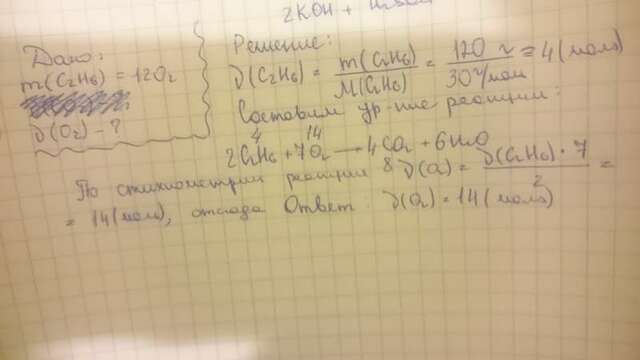 2KOH +
Дано:
m(C₂H₆) = 120г
ν(O₂) - ?
Решение:
ν(C₂H₆) = m(C₂H₆) / M(C₂H₆) = 120 г / 30 г/моль = 4 (моль)
Составим ур-ние реакции:
4 14
2C₂H₆ + 7O₂ → 4CO₂ + 6H₂O
По стехиометрии реакции ν(O₂) = ν(C₂H₆) · 7 / 2 =
= 14 (моль), отсюда Ответ: ν(O₂) = 14 (моль)